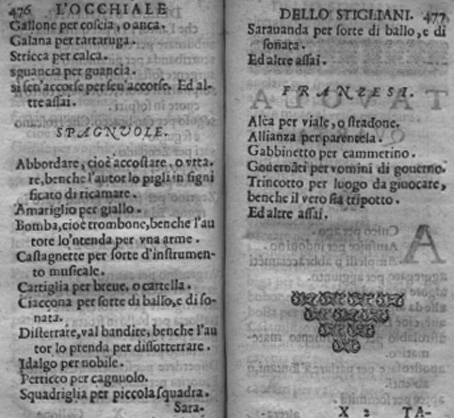 476 L'OCCHIALE
Gallone per coscia, o anca.
Galana per tartaruga.
Stricca per calca.
sguancia per guancia.
si sen'accorse per sen'accorse. Ed al-
tre assai.
SPAGNVOLE.
Abbordare, cioè accostare, o vrta-
re, benche l'autor lo pigli in signi
ficato di ricamare.
Amariglio per giallo.
Bomba, cioè trombone, benche l'au
tore lo'ntenda per vna arme.
Castagnette per sorte d'instrumen-
to musicale.
Cartiglia per breue, o cartella.
Ciaccona per sorte di ballo, e di so-
nata.
Disterrare, val bandire, benche l'au
tor lo prenda per dissotterrare.
Idalgo per nobile.
Perricco per cagnuolo.
Squadriglia per piccola squadra.
Sara-
DELLO STIGLIANI. 477
Sarauanda per sorte di ballo, e di
sonata.
Ed altre assai.
FRANZESI.
Alèa per viale, o stradone.
Allianza per parentela.
Gabbinetto per cammerino.
Gouernāti per vomini di gouerno.
Trincotto per luogo da giuocare,
benche il vero sia tripotto.
Ed altre assai.
X 2 TA-